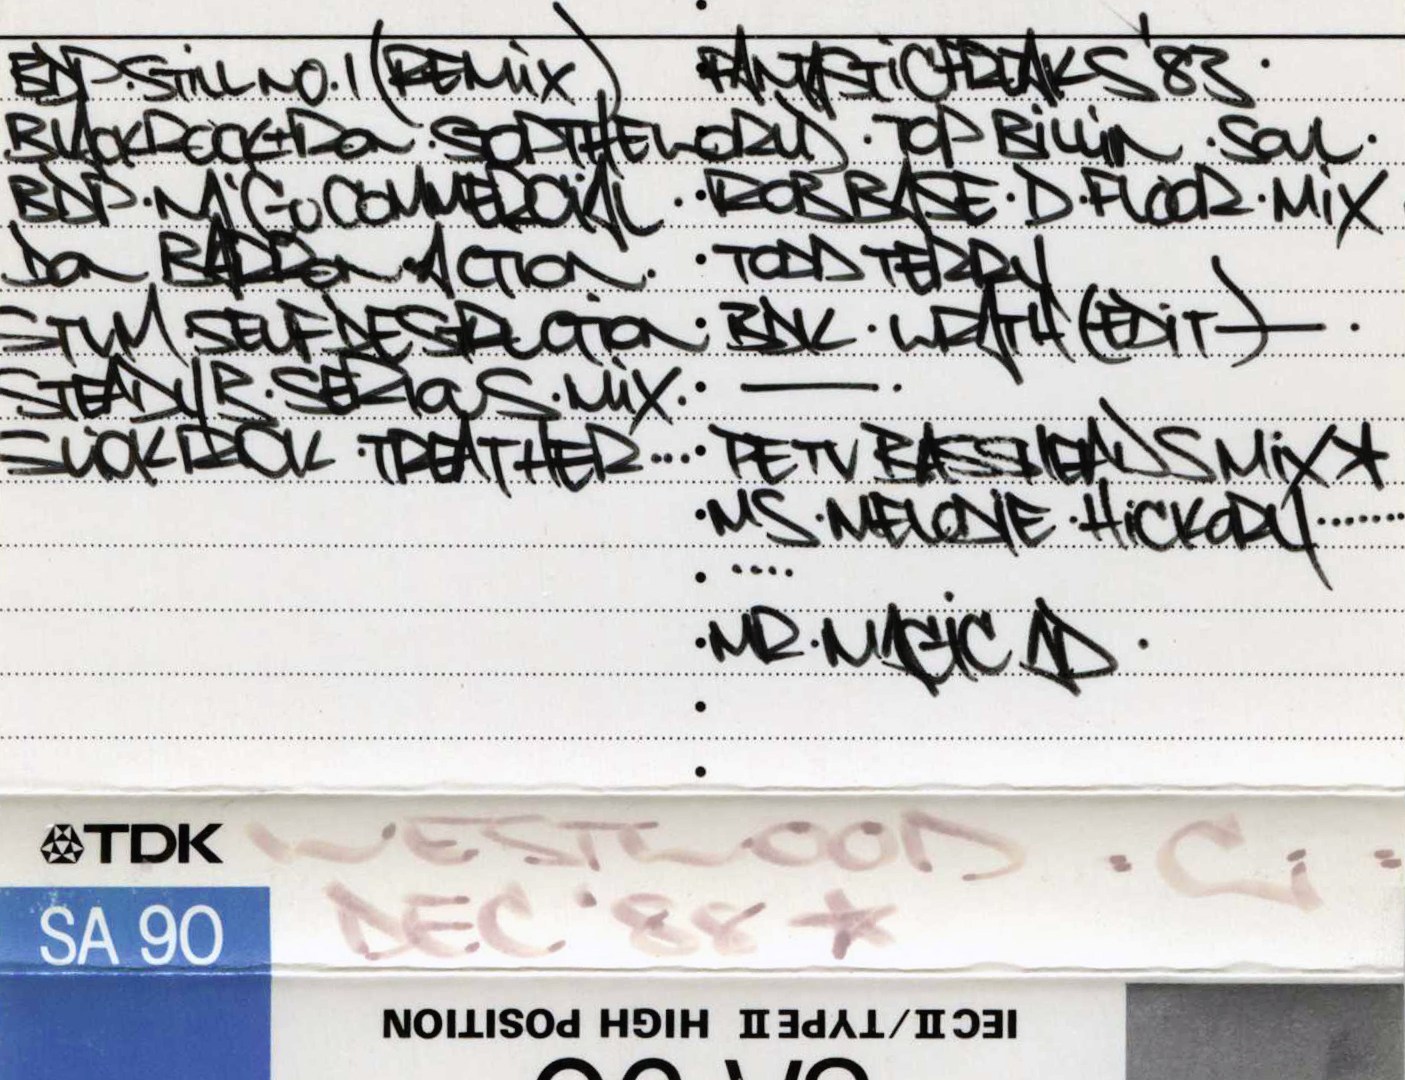 BDP. STILL NO. 1 (REMIX)
BLACKROCK+RON . STOP THE WORLD
BDP. M'GO COMMERCIAL
Don BARRON . ACTION .
STUM SELF DESTRUCTION
STEADY B. SERIOUS. MIX.
SLICK RICK . TREATHER...
. FANTASTIC FREAKS '83 .
. TOP BILLIN . Soul .
. ROB BASE . D. FLOOR . MIX .
. TODD TERRY
. BDK . WRATH (EDIT) — .
. — .
. PETV BASSHEADS MIX ★
. MS. MELODIE . HICKORY .......
. ....
. MR. MAGIC AD .
TDK
WESTWOOD . C1 .
DEC '88 ★
SA 90
IEC II/TYPE II HIGH POSITION
SA 90